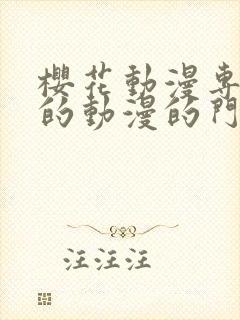 櫻花動漫專
的動漫的門
汪汪汪